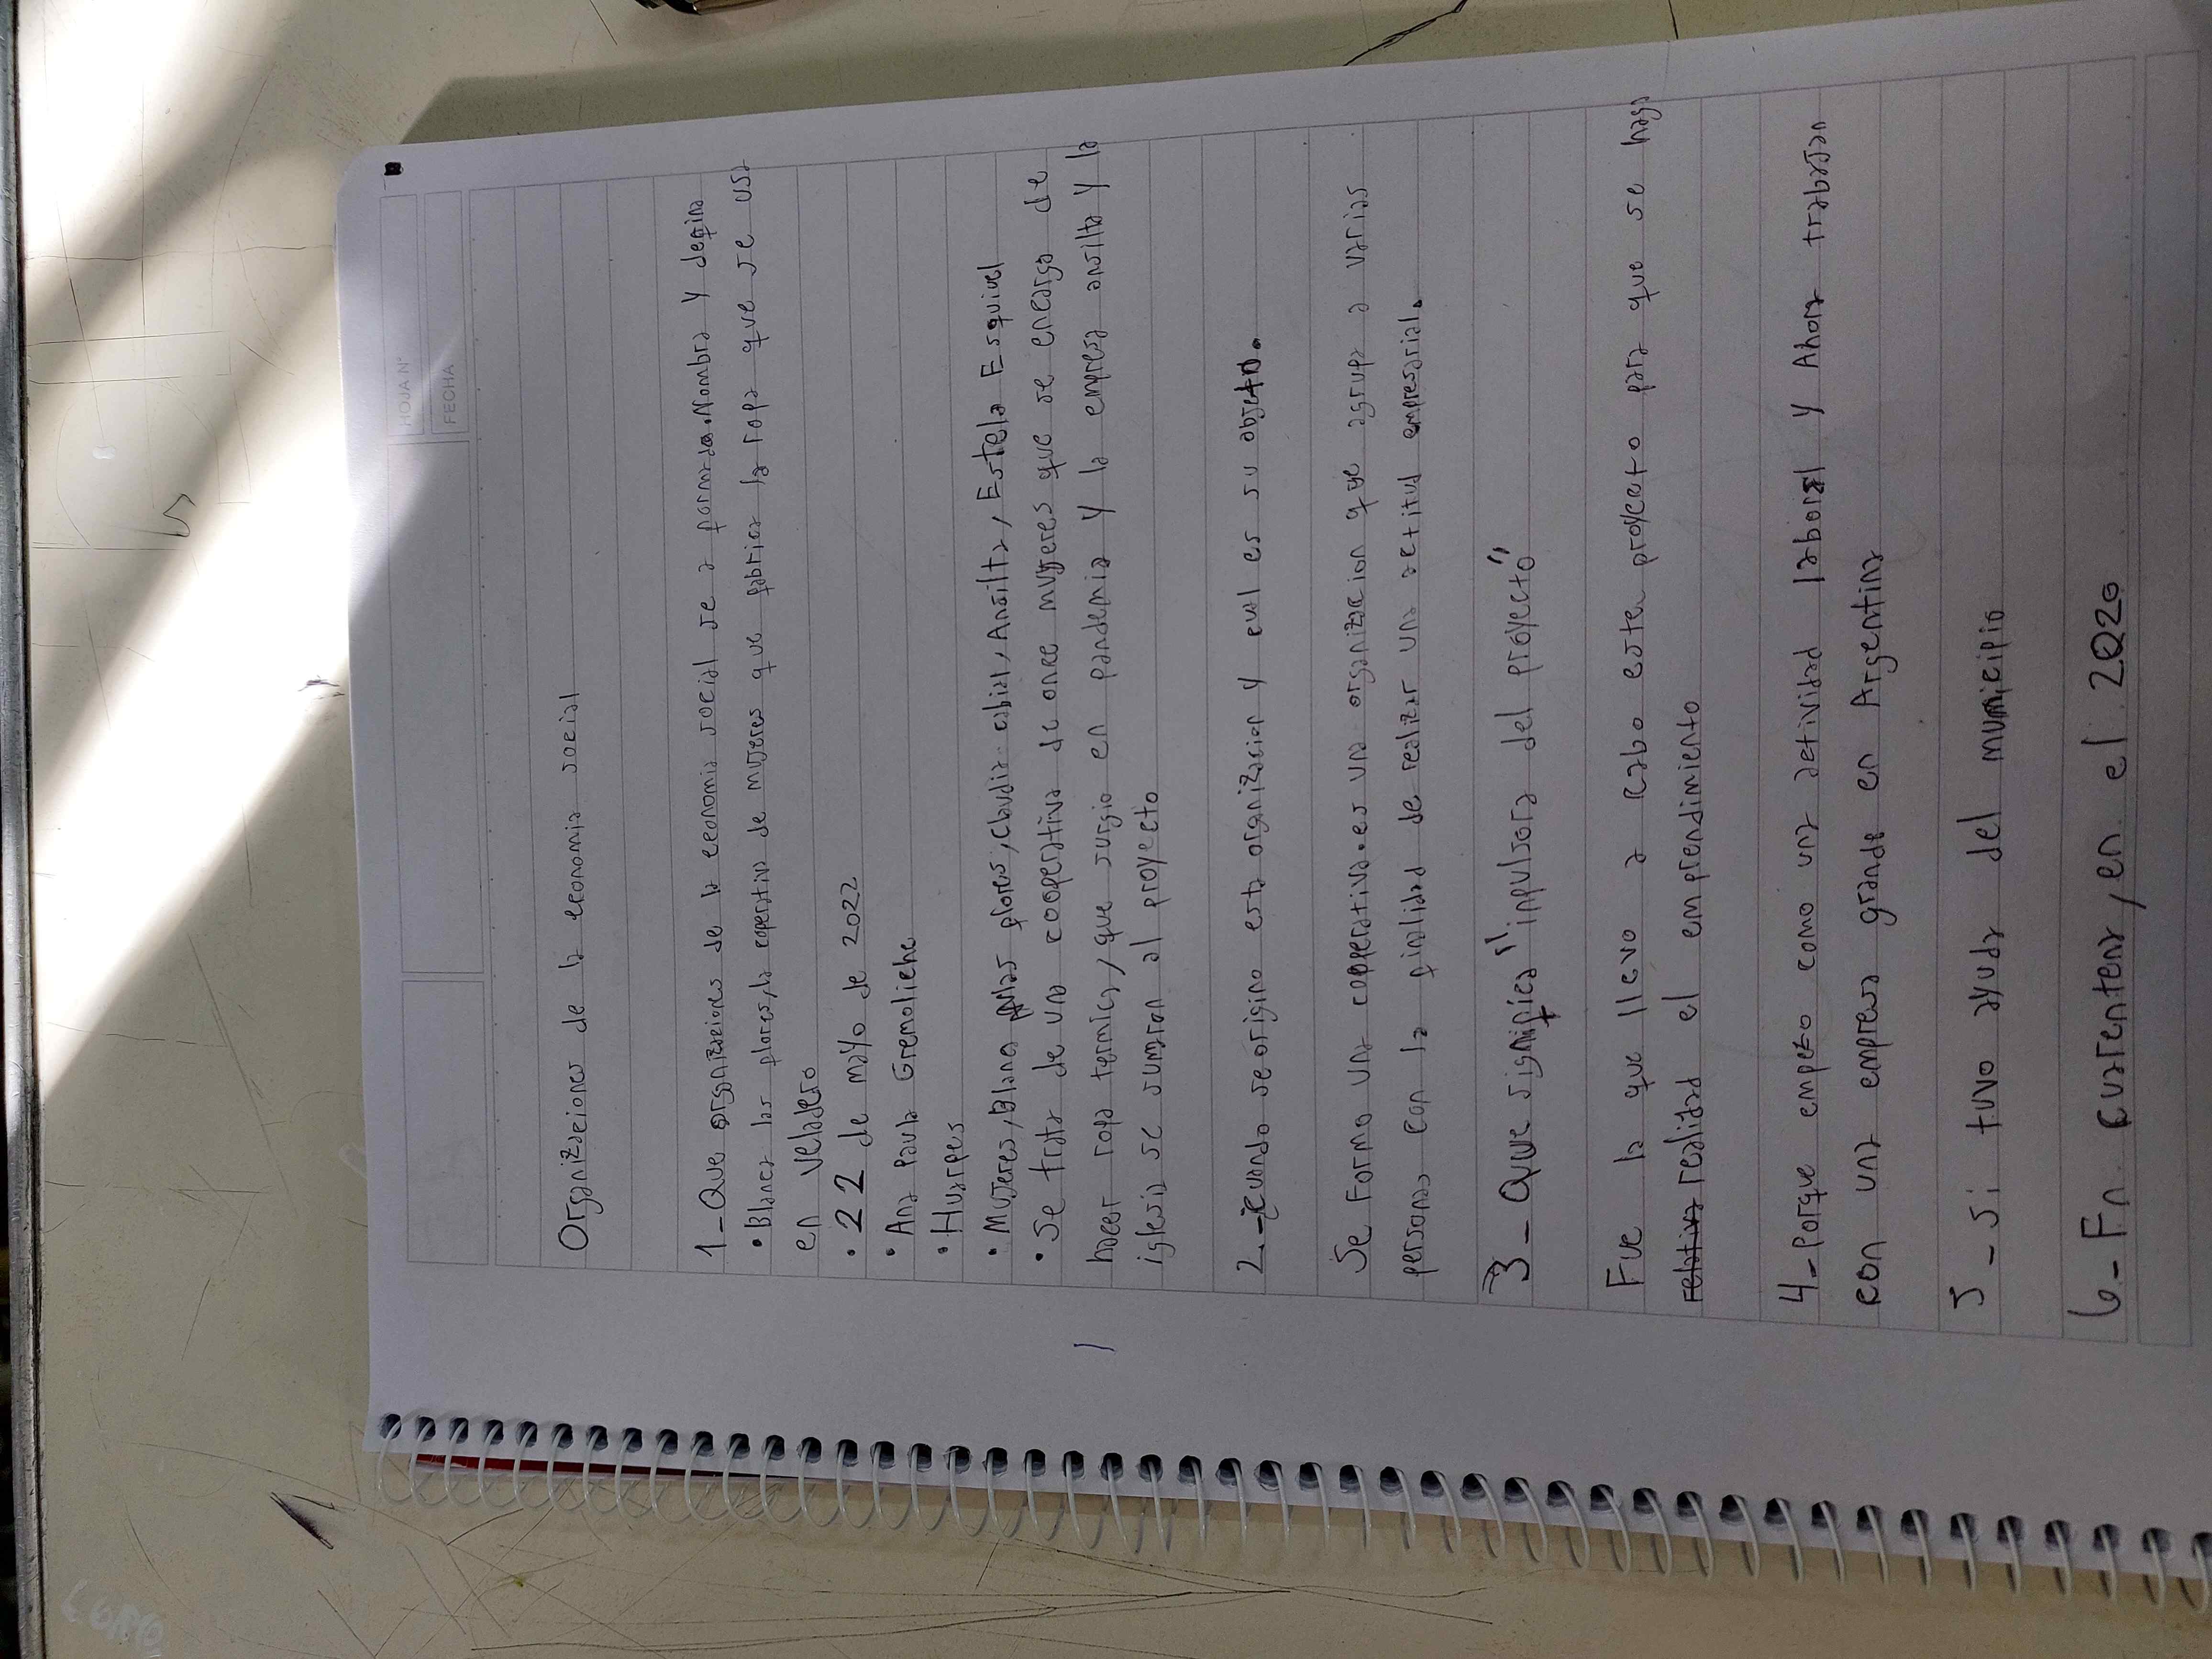 HOJA N°
FECHA
Organizaciones de la economia social
1_Que organizaciones de la economia social se a formado.Nombra y defina
• Blanca las flores, la coperativa de mujeres que fabrica la ropa que se usa
en veladero
• 22 de mayo de 2022
• Ana Paula Gremoliche
• Huarpes
• Mujeres, Blanca flores, Claudia cabial, Ansilta, Estela Esquivel
• Se trata de una cooperativa de once mujeres que se encargo de
hacer ropa termica, que surgio en pandemia y la empresa ansilta y la
iglesia se sumaron al proyecto
2.- cuando se origino esta organizacion y cual es su objeto.
Se Formo una cooperativa.es una organizacion que agrupa a varias
personas con la finalidad de realizar una actitud empresarial.
3_ Que significa "inpulsora del proyecto"
Fue la que llevo a cabo este proyecto para que se haga
realidad el emprendimiento
4_ Porque empezo como una actividad laboral y Ahora trabajan
con una empresa grande en Argentina
5_ Si tuvo ayuda del municipio
6_ En cuarentena, en el 2020